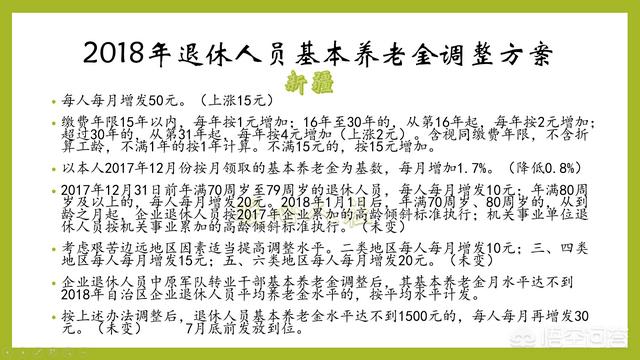 2018年退休人员基本养老金调整方案
新疆
• 每人每月增发50元。（上涨15元）
• 缴费年限15年以内，每年按1元增加；16年至30年的，从第16年起，每年按2元增加；
超过30年的，从第31年起，每年按4元增加（上涨2元）。含视同缴费年限，不含折
算工龄，不满1年的按1年计算。不满15元的，按15元增加。
• 以本人2017年12月份按月领取的基本养老金为基数，每月增加1.7%。（降低0.8%）
• 2017年12月31日前年满70周岁至79周岁的退休人员，每人每月增发10元；年满80周
岁及以上的，每人每月增发20元。2018年1月1日后，年满70周岁、80周岁的，从到
龄之月起，企业退休人员按2017年企业累加的高龄倾斜标准执行；机关事业单位退
休人员按机关事业累加的高龄倾斜标准执行。（未变）
• 考虑艰苦边远地区因素适当提高调整水平。二类地区每人每月增发10元；三、四类
地区每人每月增发15元；五、六类地区每人每月增发20元。（未变）
• 企业退休人员中原军队转业干部基本养老金调整后，其基本养老金月水平达不到
2018年自治区企业退休人员平均养老金水平的，按平均水平计发。
• 按上述办法调整后，退休人员基本养老金水平达不到1500元的，每人每月再增发30
元。（未变） 7月底前发放到位。
悟空问答